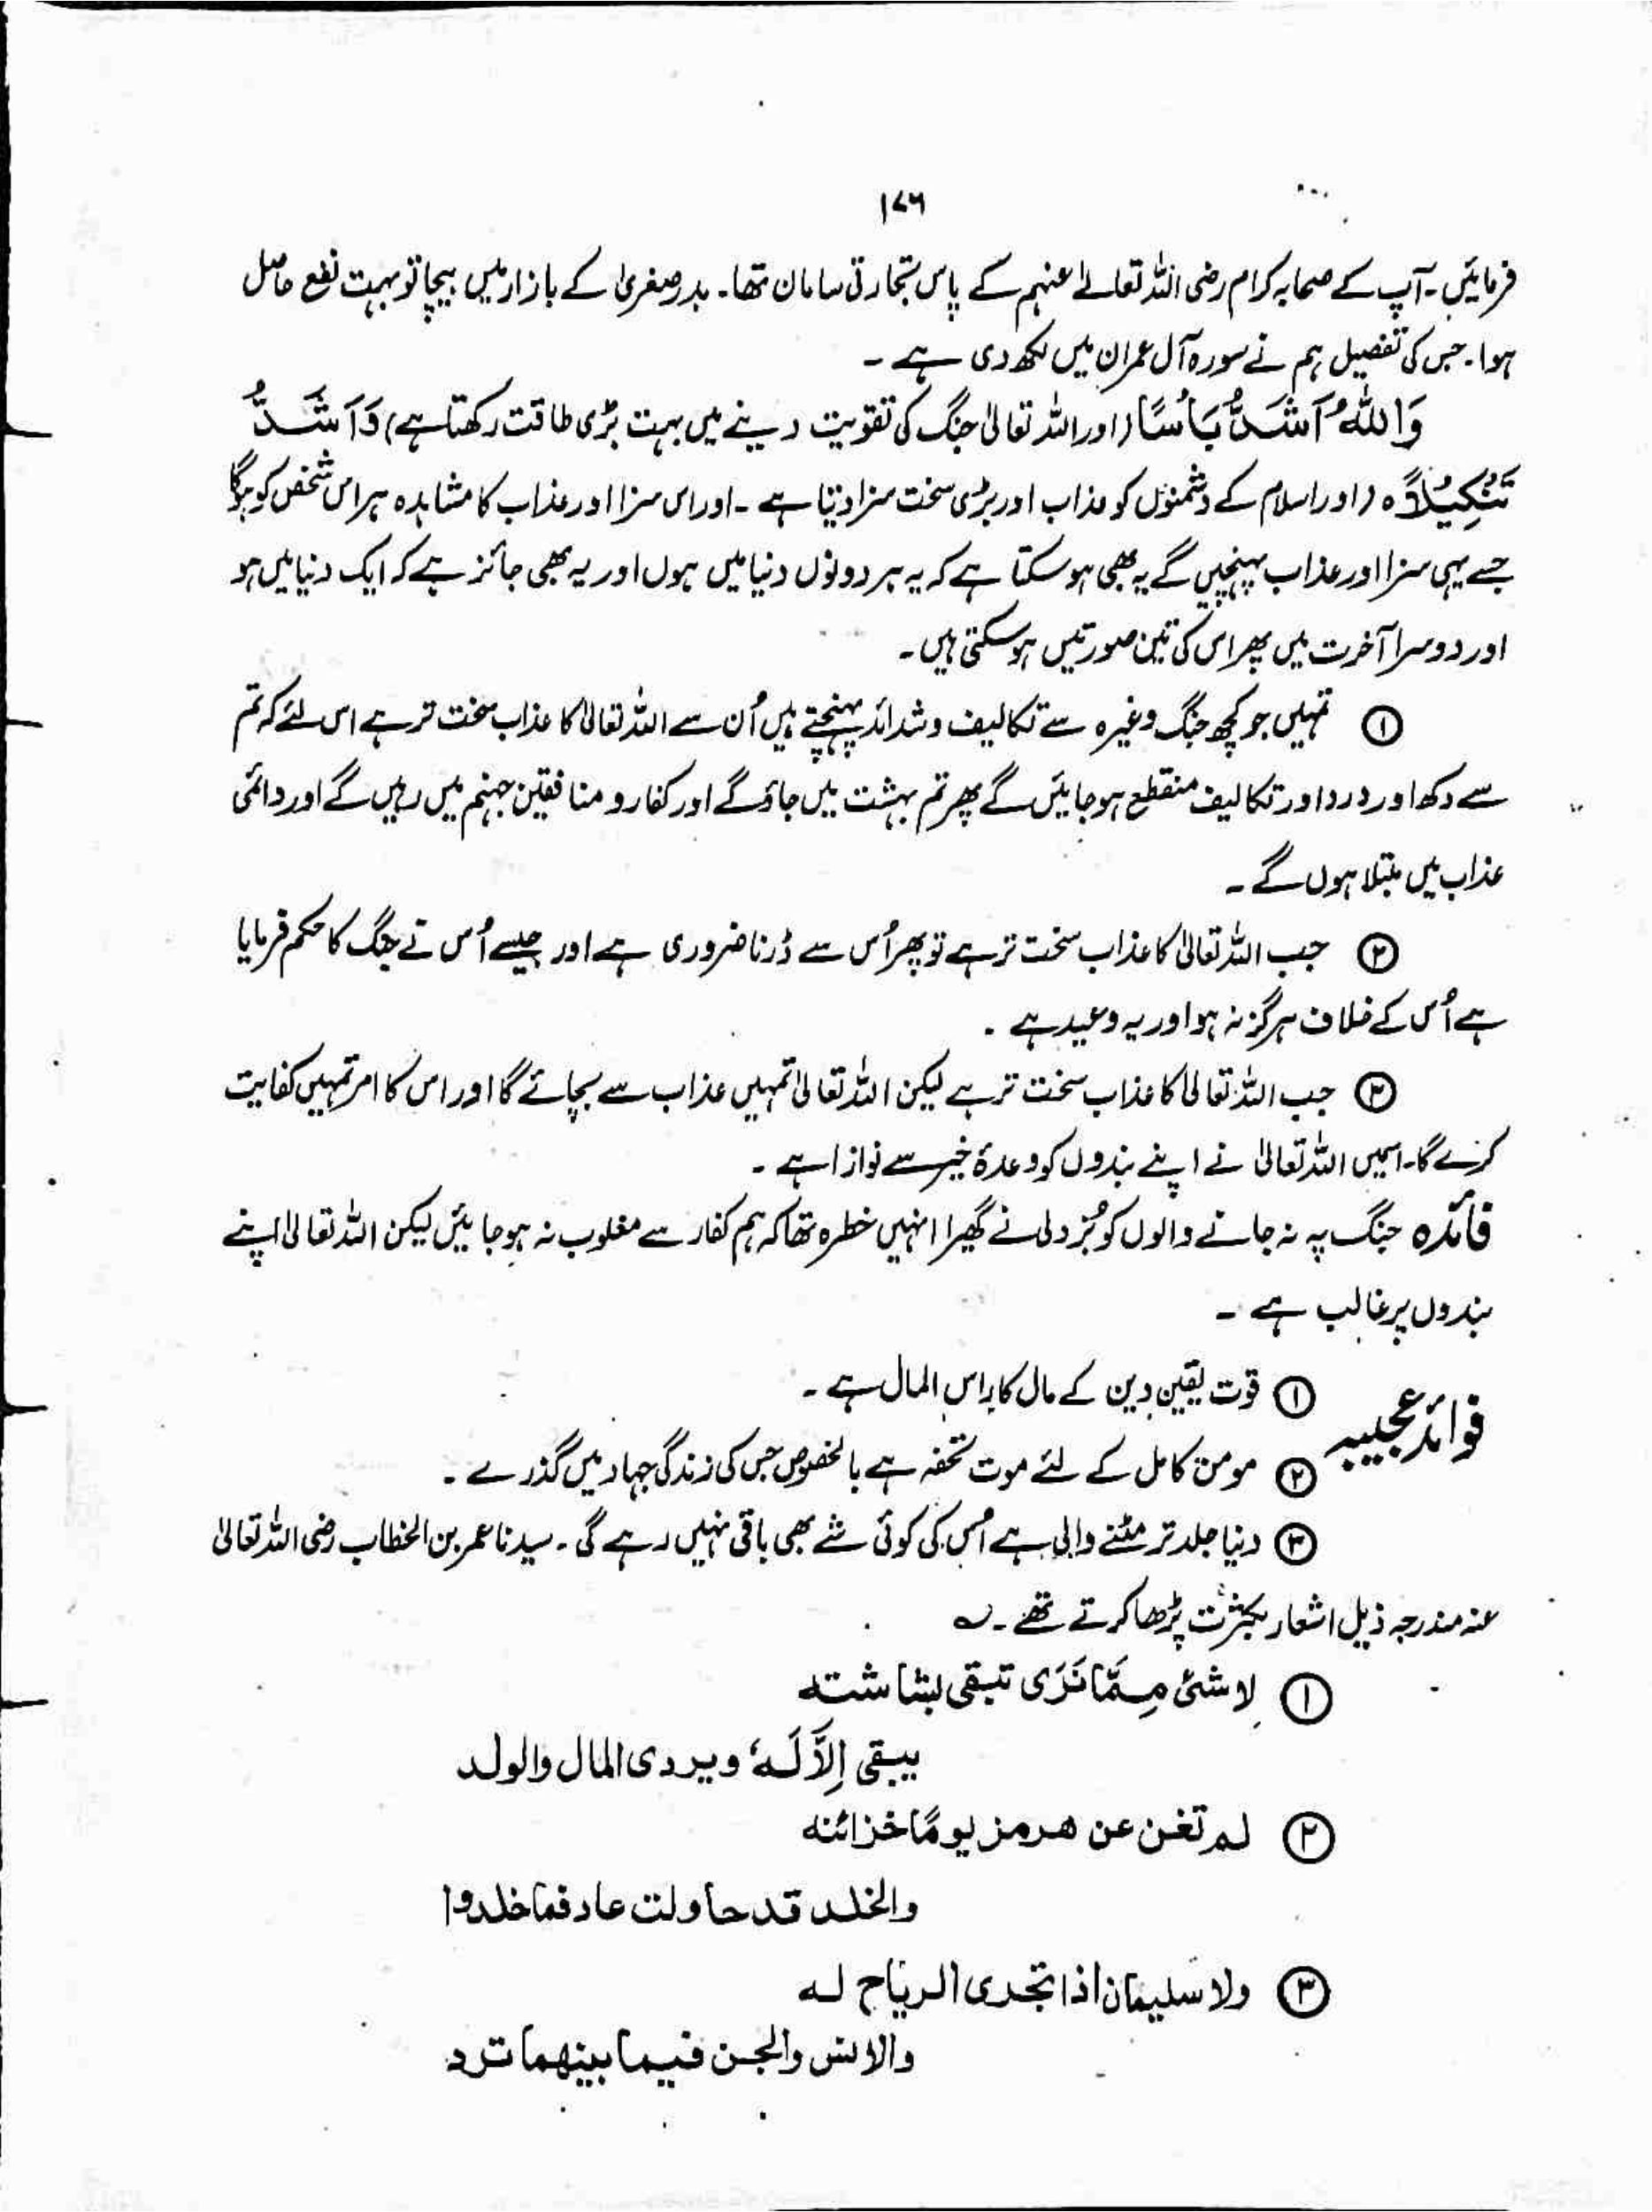 ۱۷۶
فرمائیں۔ آپ کے صحابہ کرام رضی اللہ تعالےٰ عنہم کے پاس تجارتی سامان تھا۔ بدر صغریٰ کے بازار میں بیچا تو بہت نفع حاصل
ہوا۔ جس کی تفصیل ہم نے سورہ آل عمران میں لکھ دی ہے ۔
وَاللّٰہُ اَشَدُّ بَاْسًا (اور اللہ تعالیٰ جنگ کی تقویت دینے میں بہت بڑی طاقت رکھتا ہے) وَاَشَدُّ
تَنْکِیْلًا ہ (اور اسلام کے دشمنوں کو عذاب اور بڑی سخت سزا دیتا ہے ۔ اور اس سزا اور عذاب کا مشاہدہ ہر اس شخص کو ہوگا
جسے یہی سزا اور عذاب پہنچیں گے یہ بھی ہو سکتا ہے کہ یہ ہر دونوں دنیا میں ہوں اور یہ بھی جائز ہے کہ ایک دنیا میں ہو
اور دوسرا آخرت میں پھر اس کی تین صورتیں ہو سکتی ہیں۔
① تمہیں جو کچھ جنگ وغیرہ سے تکالیف و شدائد پہنچتے ہیں اُن سے اللہ تعالیٰ کا عذاب سخت تر ہے اس لئے کہ تم
سے دکھ اور درد اور تکالیف منقطع ہو جائیں گے پھر تم بہشت میں جاؤ گے اور کفار و منافقین جہنم میں رہیں گے اور دائمی
عذاب میں مبتلا ہوں گے ۔
② جب اللہ تعالیٰ کا عذاب سخت تر ہے تو پھر اُس سے ڈرنا ضروری ہے اور جیسے اُس نے جنگ کا حکم فرمایا
ہے اُس کے خلاف ہرگز نہ ہو اور یہ وعید ہے ۔
③ جب اللہ تعالیٰ کا عذاب سخت تر ہے لیکن اللہ تعالیٰ تمہیں عذاب سے بچائے گا اور اس کا امر تمہیں کفایت
کرے گا۔ اسمیں اللہ تعالیٰ نے اپنے بندوں کو وعدۂ خیر سے نوازا ہے ۔
فائدہ جنگ پہ نہ جانے والوں کو بُزدلی نے گھیرا انہیں خطرہ تھا کہ ہم کفار سے مغلوب نہ ہو جائیں لیکن اللہ تعالیٰ اپنے
بندوں پر غالب ہے ۔
فوائد عجیبہ ① قوت یقین دین کے مال کا راس المال ہے ۔
② مومن کامل کے لئے موت تحفہ ہے بالخصوص جس کی زندگی جہاد میں گذرے ۔
③ دنیا جلد تر مٹنے والی ہے اُس کی کوئی شے بھی باقی نہیں رہے گی ۔ سیدنا عمر بن الخطاب رضی اللہ تعالیٰ
عنہ مندرجہ ذیل اشعار بکثرت پڑھا کرتے تھے ۔ ؎
① لا شئ مِمَّا نَرَی تبقی بشاشتہ
یبقی اِلَّا لَہٗ ویردی المال والولد
② لم تغن عن ھرمز یومًا خزائنہ
والخلد قد حاولت عاد فما خلدوا
③ ولا سلیمان اذا تجدی الریاح لہ
والانس والجن فیما بینھما ترد